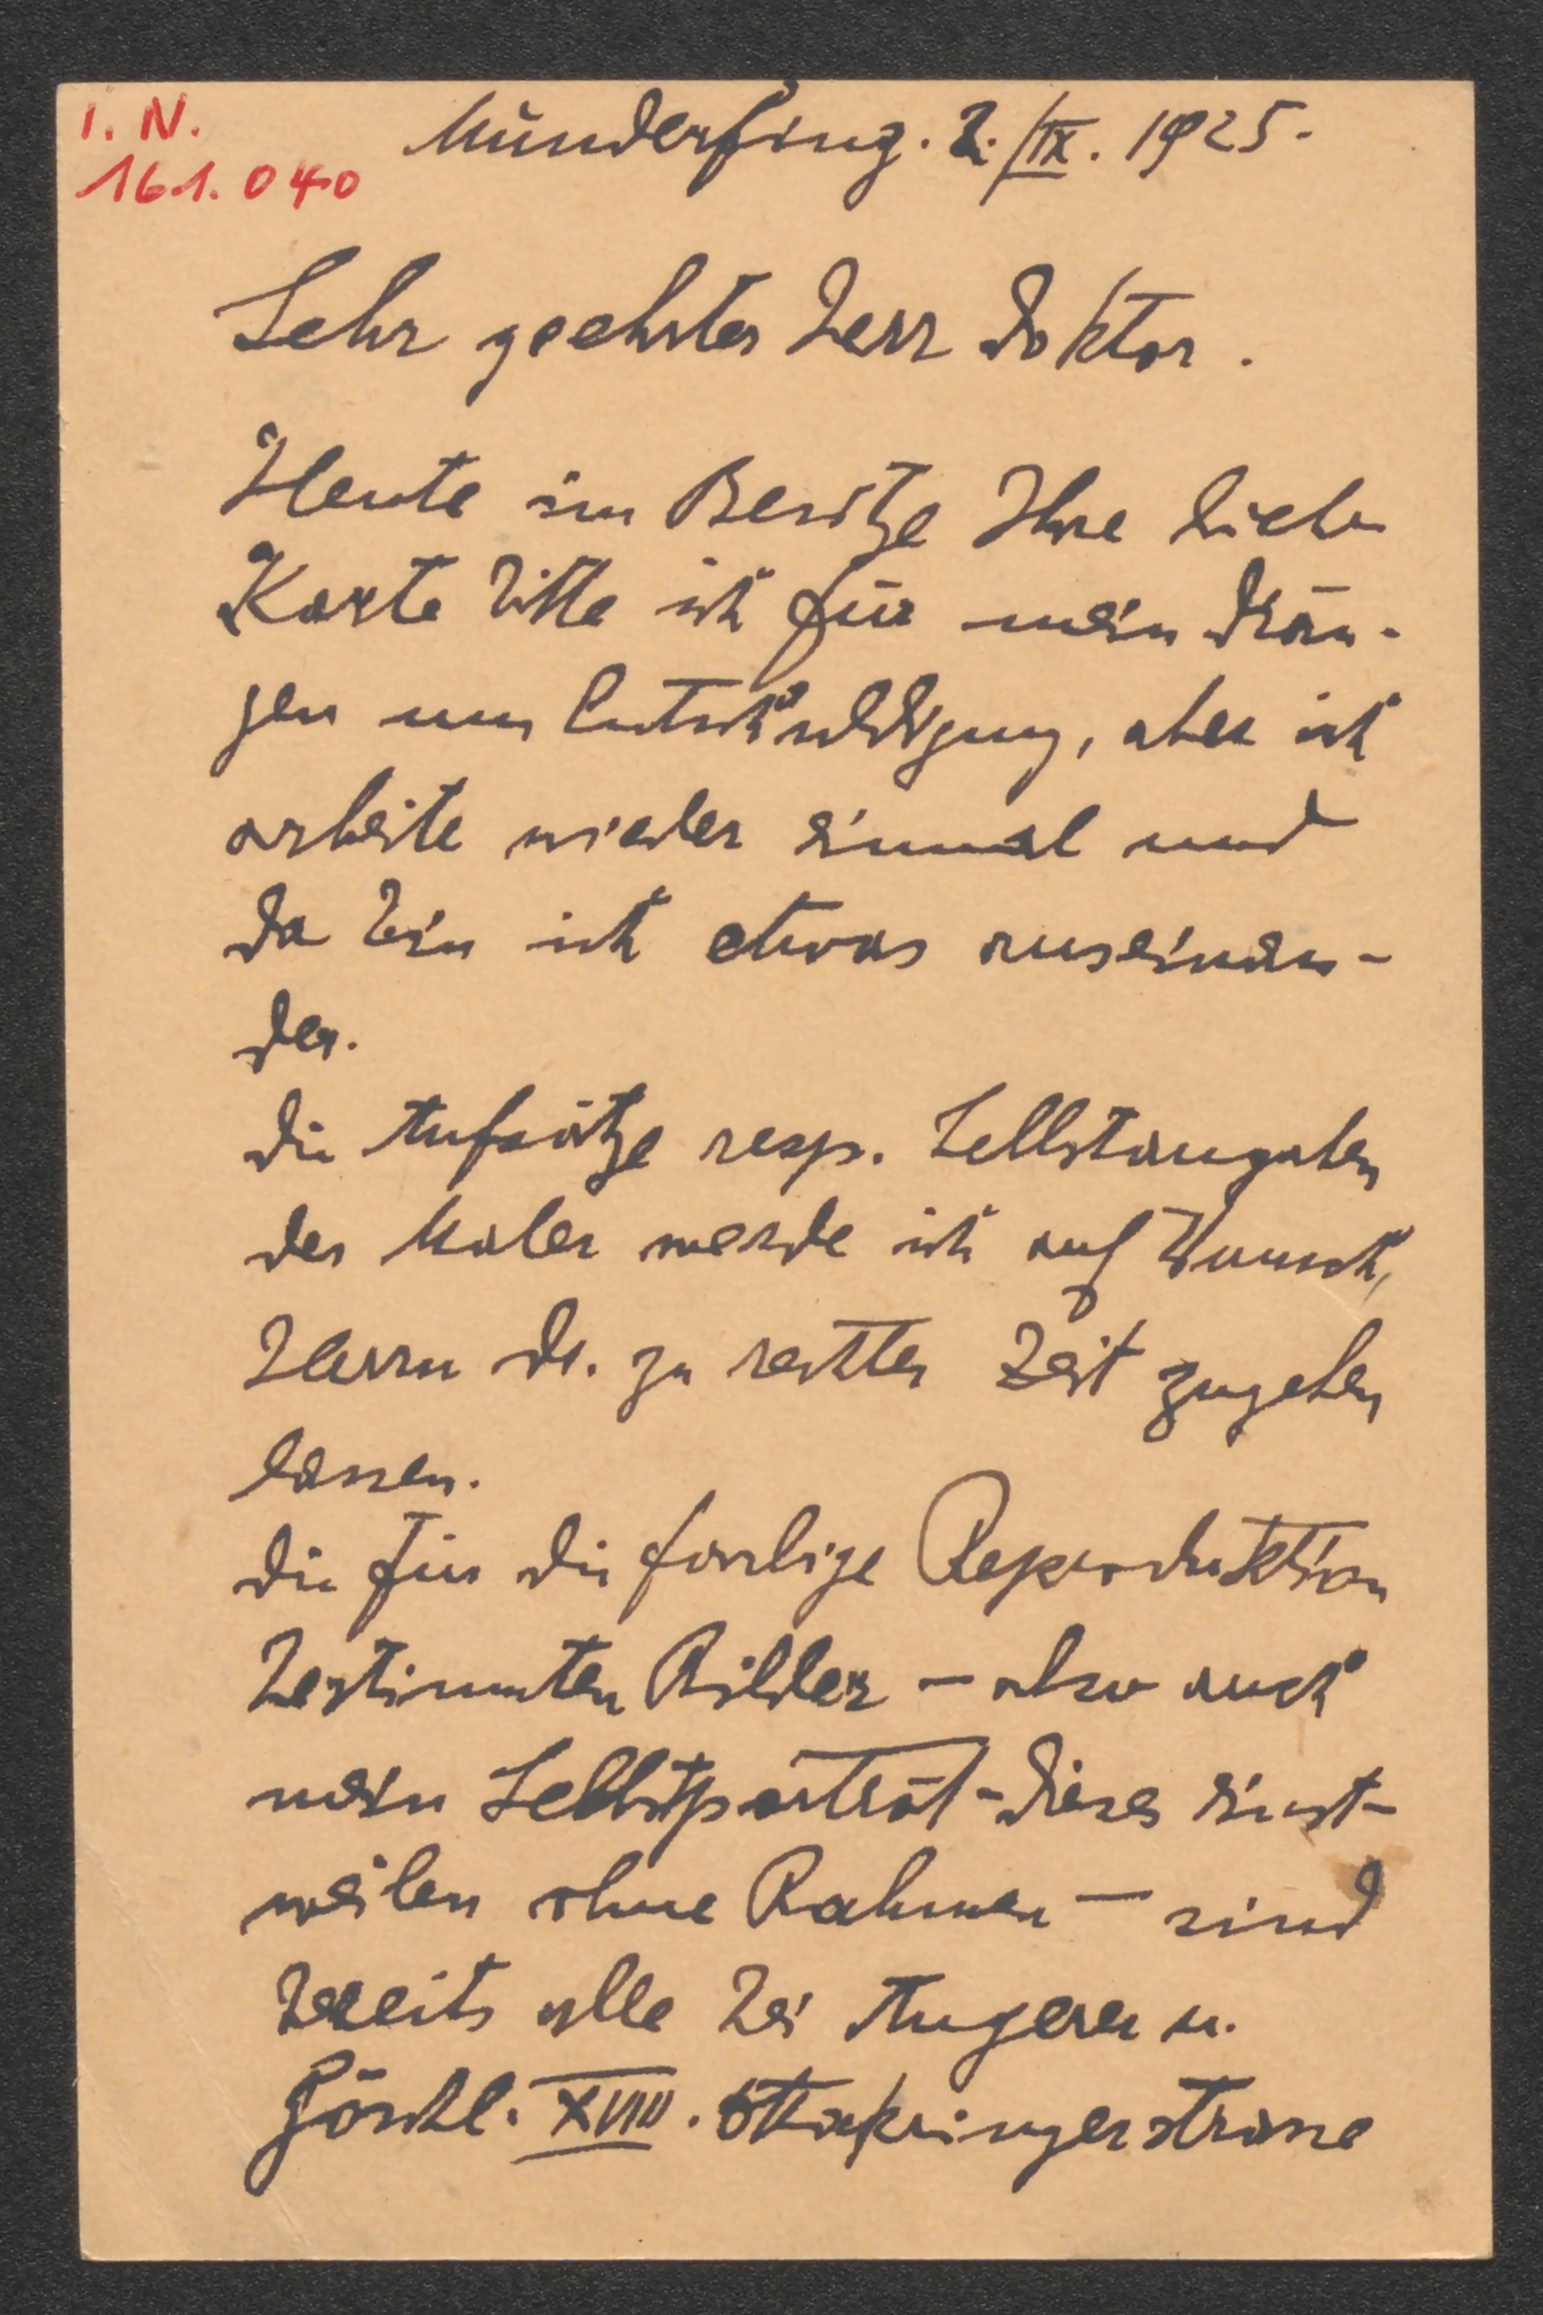 I. N.
161.040
Munderfing. 2./IX. 1925.
Sehr geehrter Herr Doktor.
Heute im Besitze Ihre liebe
Karte bitte ich für mein Drän-
gen um Entschuldigung, aber ich
arbeite wieder einmal und
da bin ich etwas auseinan-
der.
Die Aufsätze resp. Selbstangaben
der Maler werde ich auf Wunsch,
Herrn Dr. zu rechter Zeit zugehen
lassen.
Die für die farbige Reproduktion
bestimmten Bilder – also auch
mein Selbstporträt – dieses einst-
weilen ohne Rahmen – sind
bereits alle bei Angerer u.
Göschl. XVIII. Ottakringerstrasse